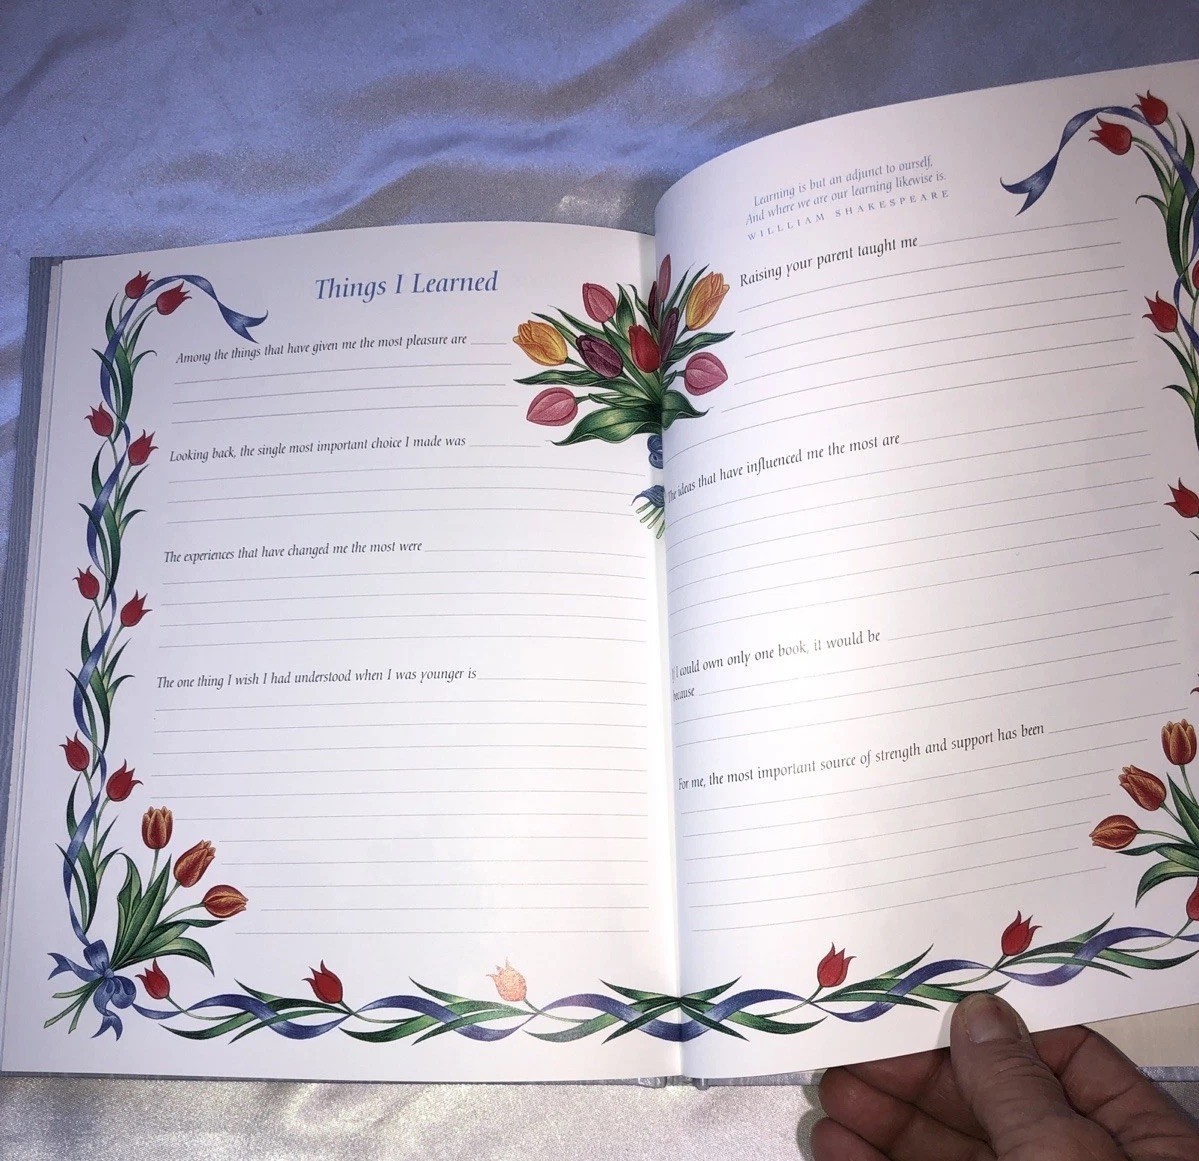 Things I Learned
Among the things that have given me the most pleasure are
Looking back, the single most important choice I made was
The experiences that have changed me the most were
The one thing I wish I had understood when I was younger is
Learning is but an adjunct to ourself,
And where we are our learning likewise is.
WILLLIAM SHAKESPEARE
Raising your parent taught me
The ideas that have influenced me the most are
If I could own only one book, it would be
because
For me, the most important source of strength and support has been